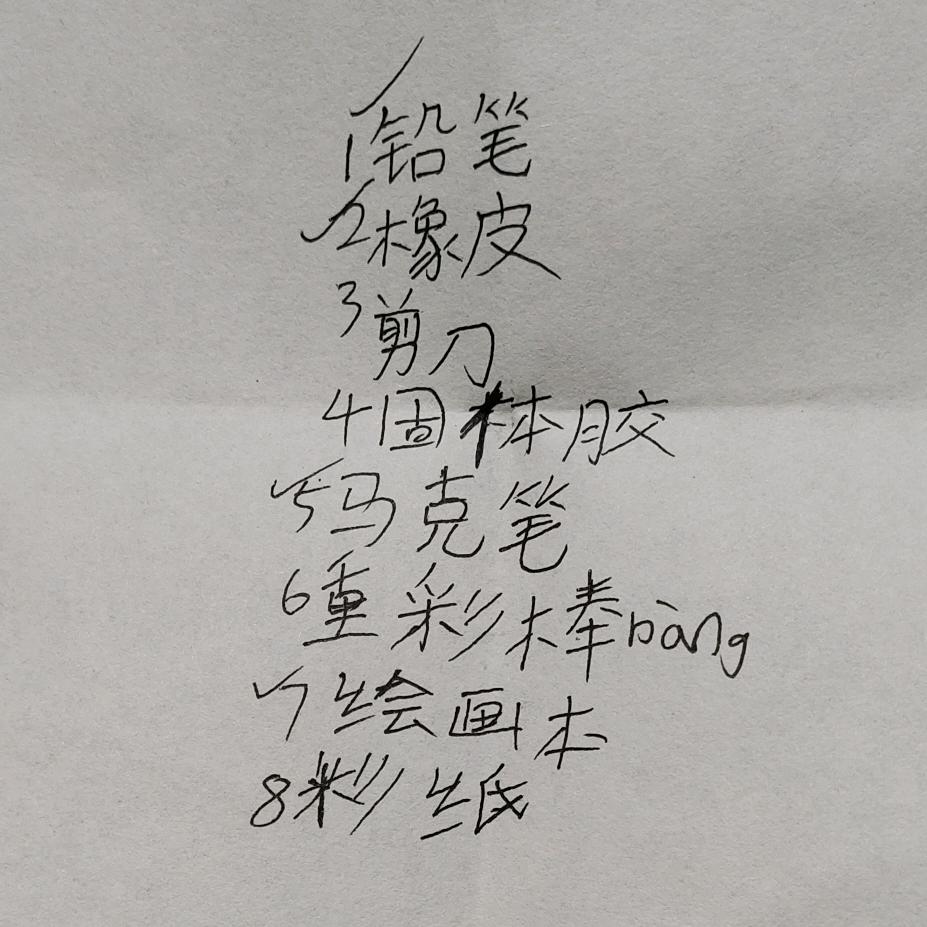 1铅笔
2橡皮
3剪刀
4固体胶
5马克笔
6重彩棒bàng
7绘画本
8彩纸